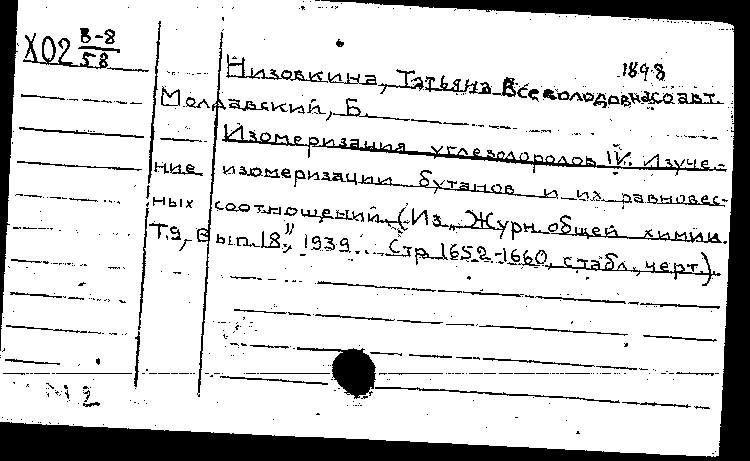 Х02 В-8
58
1898
Низовкина, Татьяна Всеволодовна соавт.
Молдавский, Б.
Изомеризация углеводородов IV. Изуче-
ние изомеризации бутанов и их равновес-
ных соотношений. (Из „Журн. общей химии.
Т.9, Вып. 18", 1939. Стр. 1652-1660, с табл., черт.).
2